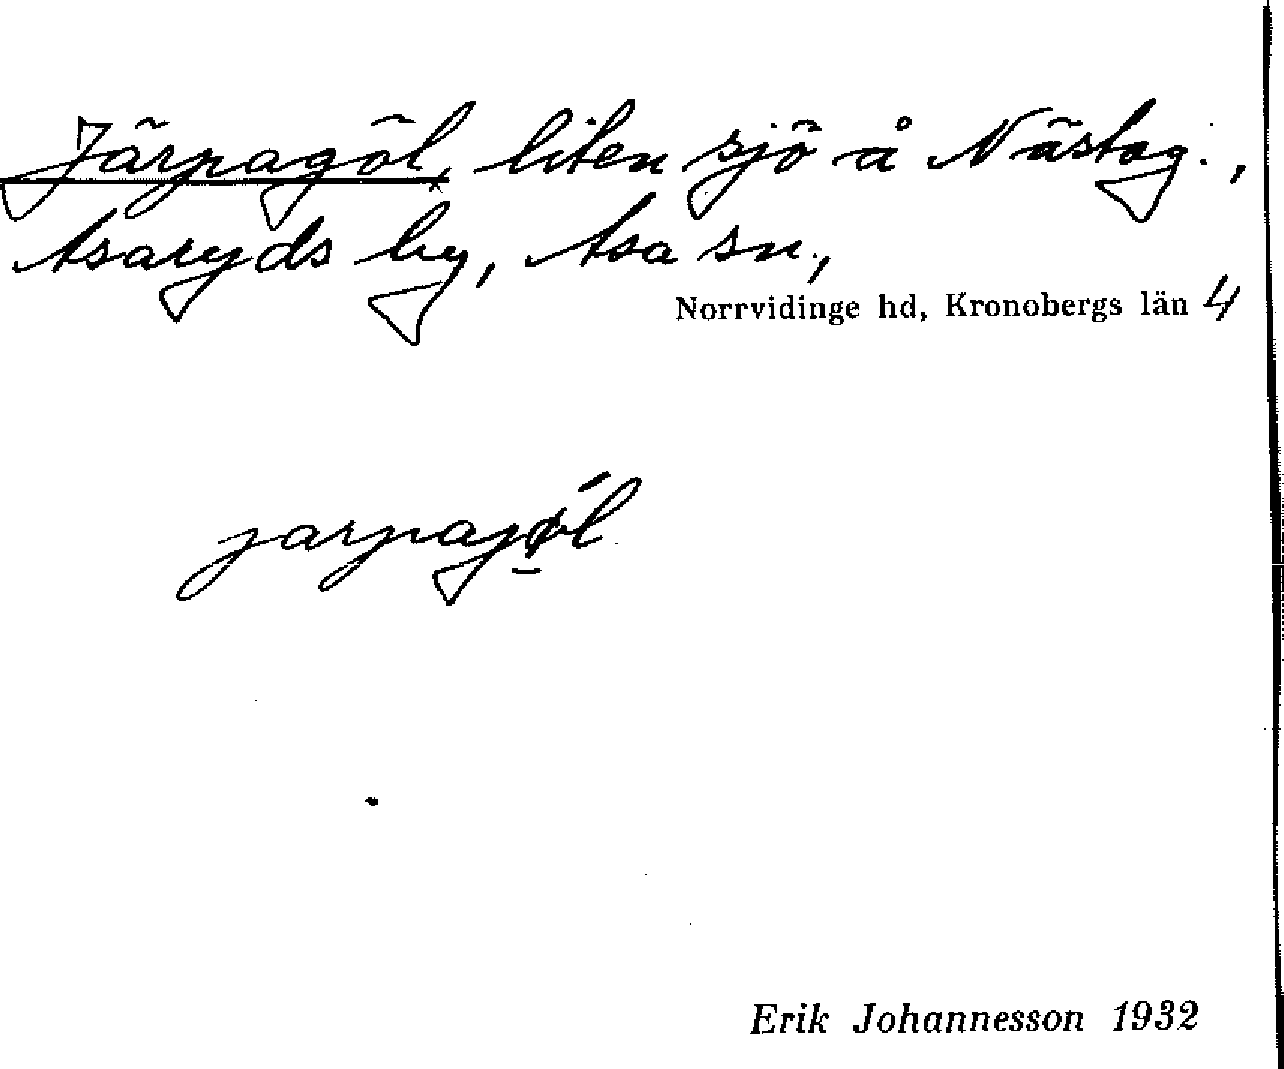 Järpagöl, liten sjö å Nästag.,
Asaryds by, Asa sn.,
Norrvidinge hd, Kronobergs län 4
jarpagǿ̱l
Erik Johannesson 1932